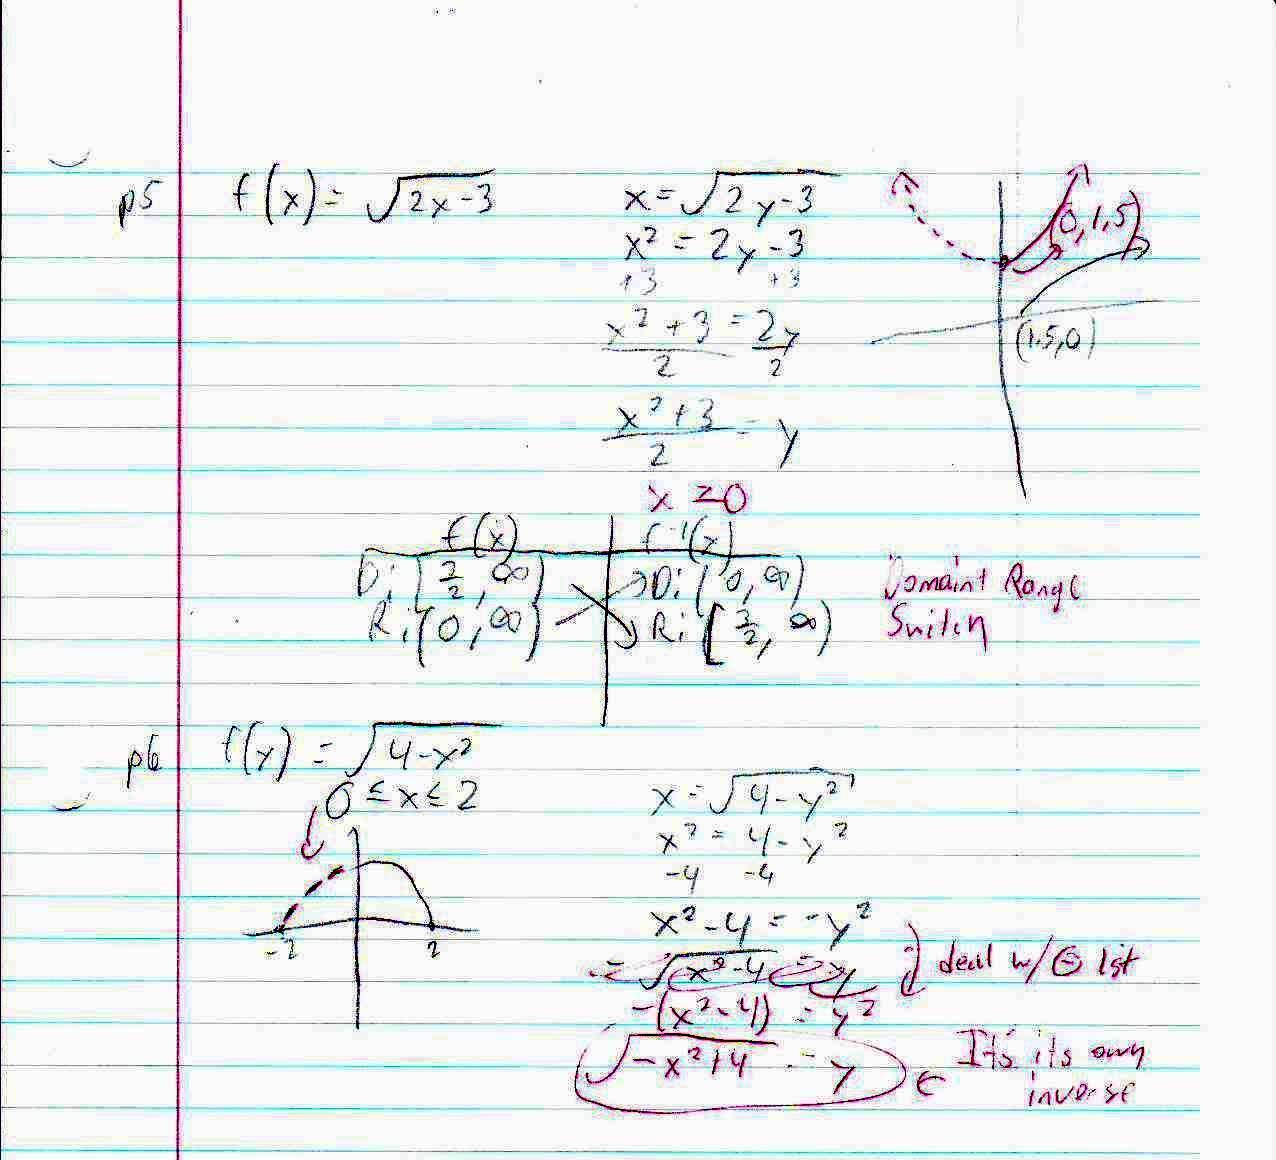 p5 f(x) = √2x-3
x = √2y-3
x² = 2y-3
+3 +3
x²+3 = 2y
2 2
x²+3 = y
2
x ≥0
(0,1.5)
(1.5,0)
f(x) f⁻¹(x)
D: [3/2, ∞) D: [0, ∞)
R: [0, ∞) R: [3/2, ∞)
Domain + Range
Switch
p6 f(x) = √4-x²
0 ≤ x ≤ 2
-2 2
x = √4-y²
x² = 4-y²
-4 -4
x²-4 = -y²
-(x²-4) = y²
√-x²+4 = y
deal w/ ⊖ 1st
It's its own
inverse